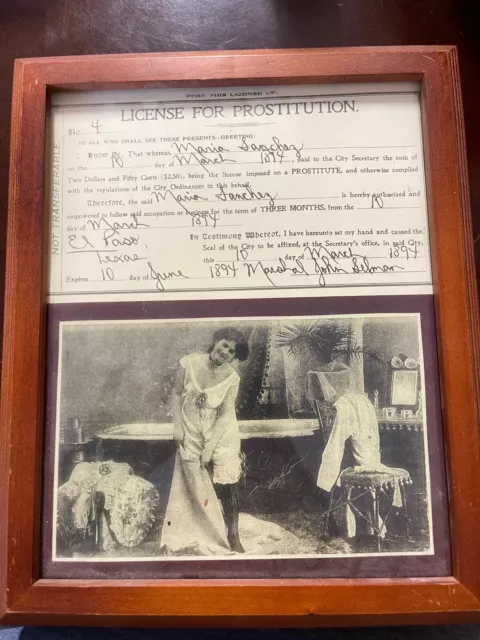 POST THIS LICENSE UP.
LICENSE FOR PROSTITUTION.
No. 4
TO ALL WHO SHALL SEE THESE PRESENTS—GREETING:
Know Ye, That whereas, Maria Sanchez
on the 10 day of March 1894, paid to the City Secretary the sum of
Two Dollars and Fifty Cents ($2.50), being the license imposed on a PROSTITUTE, and otherwise complied
with the regulations of the City Ordinances in this behalf.
Therefore, the said Maria Sanchez, is hereby authorized and
empowered to follow said occupation or business for the term of THREE MONTHS, from the 10
day of March 1894
El Paso, In Testimony Whereof, I have hereunto set my hand and caused the
Texas Seal of the City to be affixed, at the Secretary's office, in said City,
this 10 day of March 1894
Expires 10 day of June 1894 Marshal John Selman
NOT TRANSFERABLE